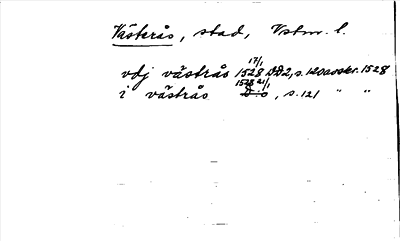 Västerås, stad, Vstm. l.
vdj västrås 17/1 1528 DD2, s. 120 avskr. 1528
i västrås 1528 21/1 D:o, s. 121 " "